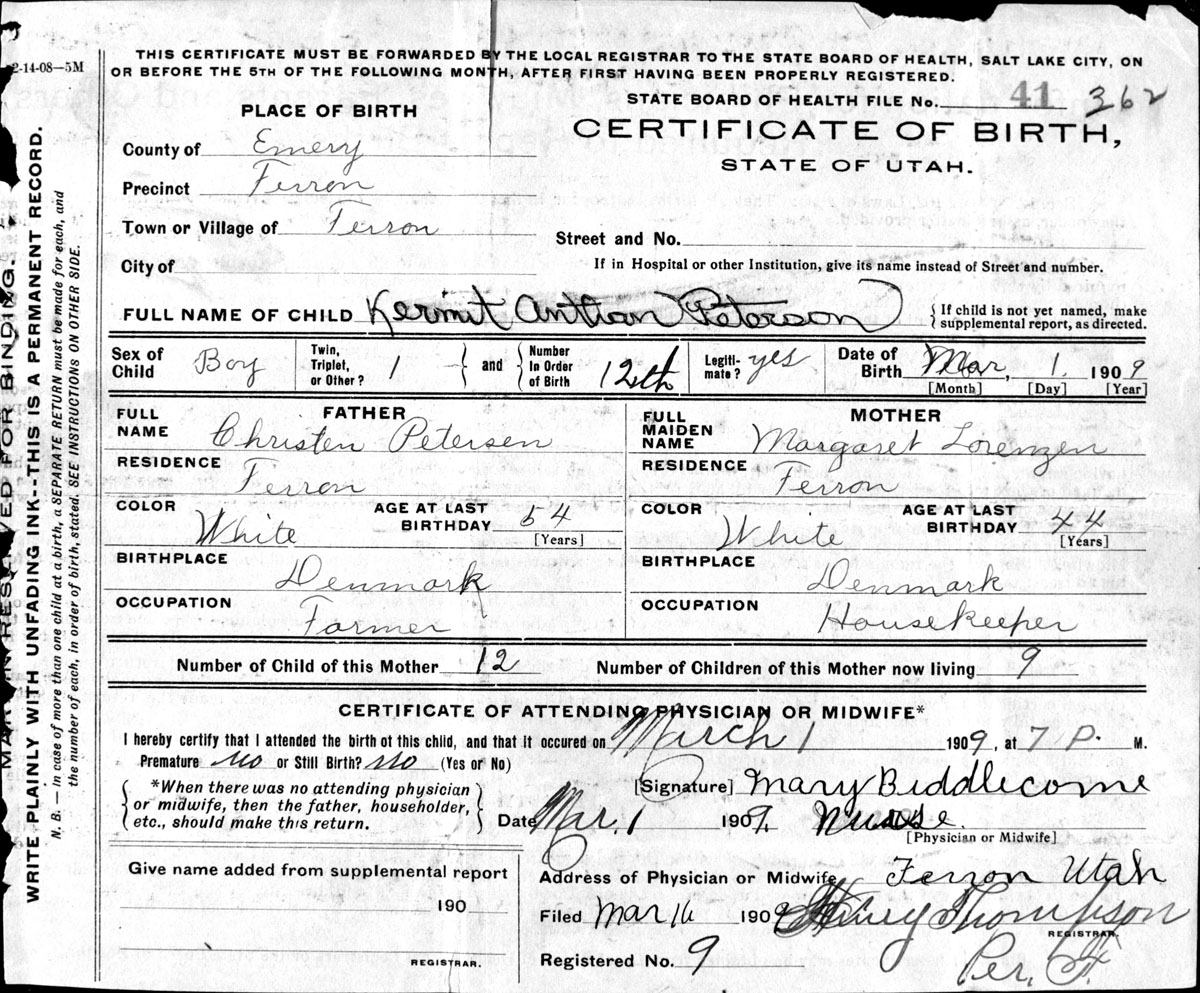 2-14-08—5M
THIS CERTIFICATE MUST BE FORWARDED BY THE LOCAL REGISTRAR TO THE STATE BOARD OF HEALTH, SALT LAKE CITY, ON
OR BEFORE THE 5TH OF THE FOLLOWING MONTH, AFTER FIRST HAVING BEEN PROPERLY REGISTERED.
STATE BOARD OF HEALTH FILE No. 41 362
PLACE OF BIRTH
CERTIFICATE OF BIRTH,
STATE OF UTAH.
County of Emery
Precinct Ferron
Town or Village of Ferron
Street and No.
City of
If in Hospital or other Institution, give its name instead of Street and number.
FULL NAME OF CHILD Kermit Anthon Peterson
If child is not yet named, make
supplemental report, as directed.
Sex of Child Boy
Twin, Triplet, or Other? 1
and
Number In Order of Birth 12th
Legiti-mate? yes
Date of Birth Mar, 1. 1909
[Month] [Day] [Year]
FATHER
FULL NAME Christen Petersen
RESIDENCE Ferron
COLOR White
AGE AT LAST BIRTHDAY 54
[Years]
BIRTHPLACE Denmark
OCCUPATION Farmer
MOTHER
FULL MAIDEN NAME Margaret Lorenzen
RESIDENCE Ferron
COLOR White
AGE AT LAST BIRTHDAY 44
[Years]
BIRTHPLACE Denmark
OCCUPATION Housekeeper
Number of Child of this Mother 12
Number of Children of this Mother now living 9
CERTIFICATE OF ATTENDING PHYSICIAN OR MIDWIFE*
I hereby certify that I attended the birth ot this child, and that it occured on March 1 1909, at 7 P. M.
Premature no or Still Birth? no (Yes or No)
*When there was no attending physician
or midwife, then the father, householder,
etc., should make this return.
[Signature] Mary Biddlecome
Date Mar. 1 1909. Nurse.
[Physician or Midwife]
Give name added from supplemental report
190
REGISTRAR.
Address of Physician or Midwife Ferron Utah
Filed Mar 16 1909 Thompson
REGISTRAR.
Registered No. 9
Per,
MARGIN RESERVED FOR BINDING.
WRITE PLAINLY WITH UNFADING INK--THIS IS A PERMANENT RECORD.
N. B. — In case of more than one child at a birth, a SEPARATE RETURN must be made for each, and
the number of each, in order of birth, stated. SEE INSTRUCTIONS ON OTHER SIDE.